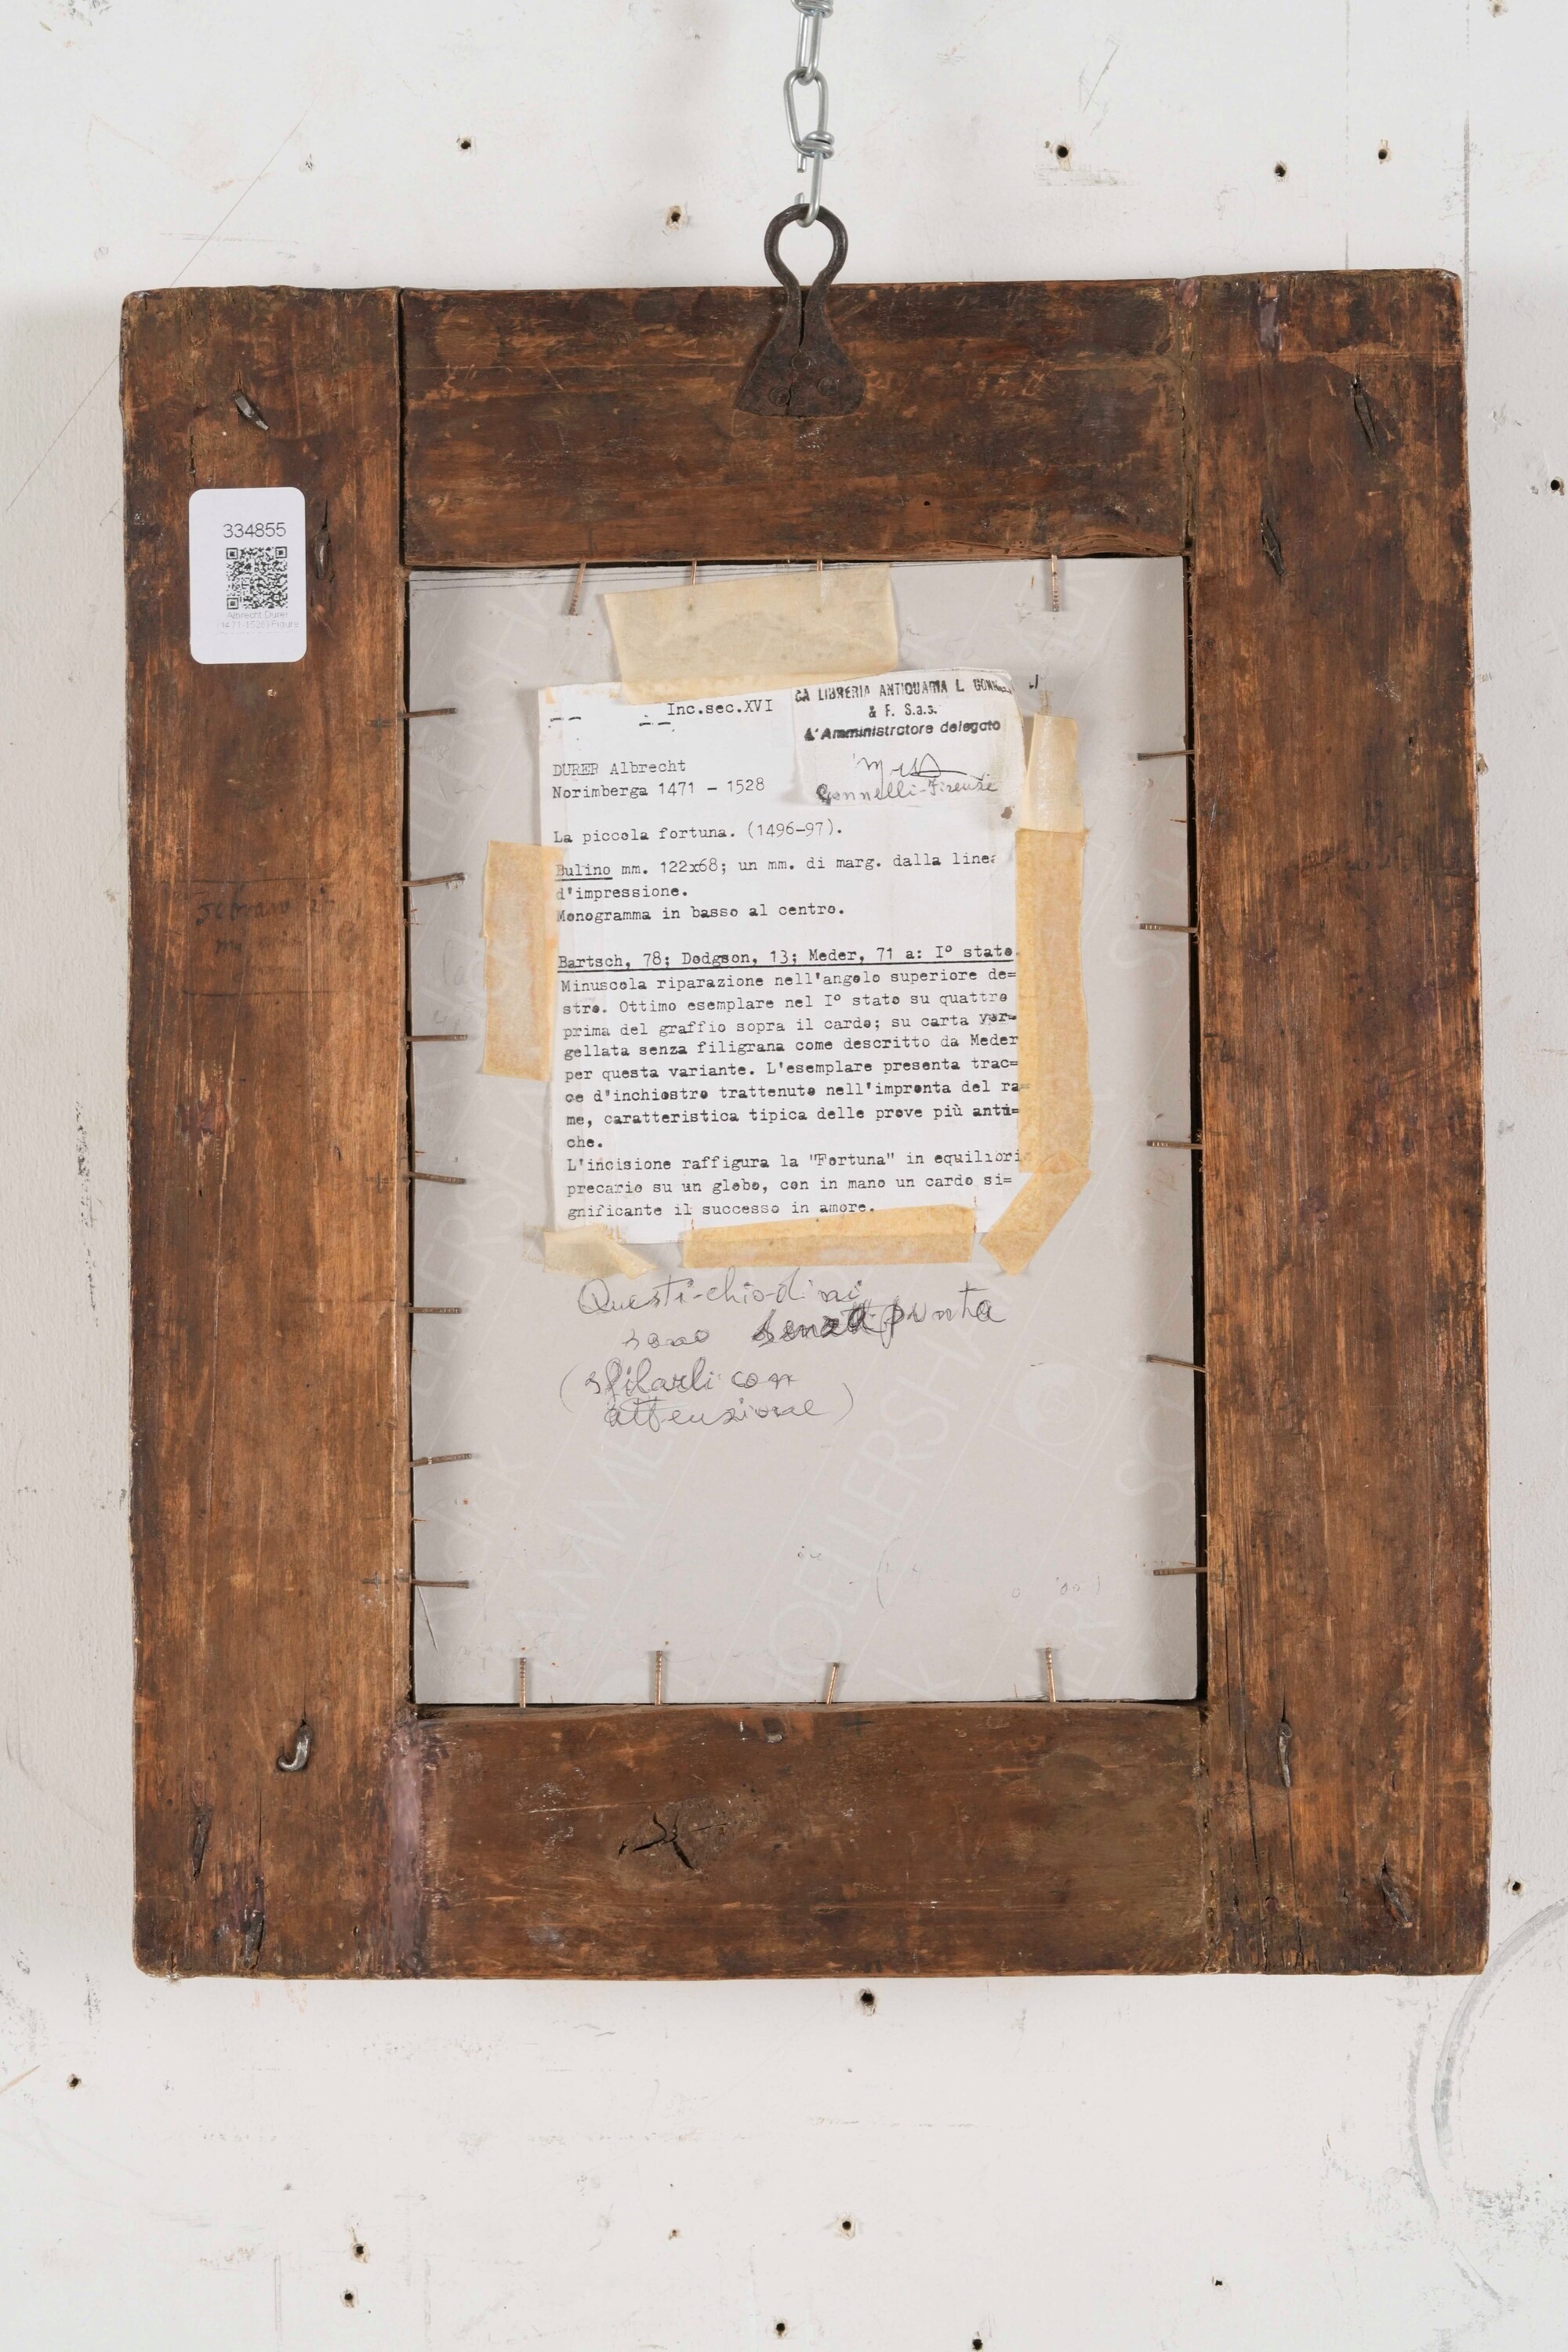 334855
Albrecht Dürer
(1471-1528) Figura
Inc.sec.XVI
CA LIBRERIA ANTIQUARIA L. GONN
& F. S.a.s.
L'Amministratore delegato
Gonnelli-Firenze
DURER Albrecht
Norimberga 1471 - 1528
La piccola fortuna. (1496-97).
Bulino mm. 122x68; un mm. di marg. dalla linea
d'impressione.
Monogramma in basso al centro.
Bartsch, 78; Dodgson, 13; Meder, 71 a: I° stato.
Minuscola riparazione nell'angolo superiore de=
stro. Ottimo esemplare nel I° stato su quattro
prima del graffio sopra il cardo; su carta ver=
gellata senza filigrana come descritto da Meder
per questa variante. L'esemplare presenta trac=
ce d'inchiostro trattenuto nell'impronta del ra=
me, caratteristica tipica delle prove più anti=
che.
L'incisione raffigura la "Fortuna" in equilibrio
precario su un globo, con in mano un cardo si=
gnificante il successo in amore.
Questi chiodini
sono senza punta
(sfilarli con
attenzione)